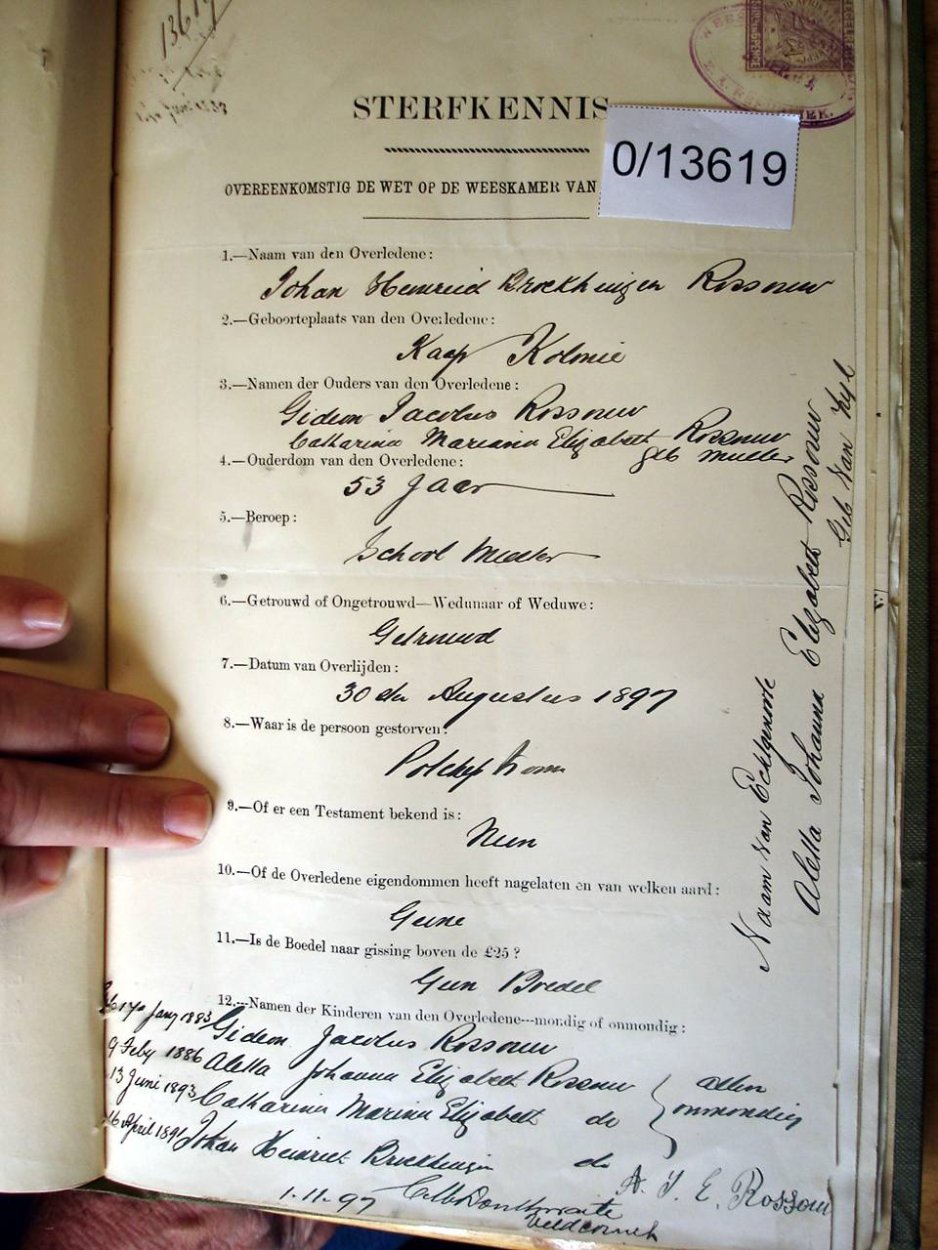 13619
STERFKENNIS
0/13619
OVEREENKOMSTIG DE WET OP DE WEESKAMER VAN
1.—Naam van den Overledene:
Johan Heinrich Brockhuizen Rossouw
2.—Geboorteplaats van den Overledene:
Kaap Kolonie
3.—Namen der Ouders van den Overledene:
Gideon Jacobus Rossouw
Catharina Maria Elizabeth Rossouw
geb Muller
4.—Ouderdom van den Overledene:
53 Jaar
5.—Beroep:
School Meester
6.—Getrouwd of Ongetrouwd—Wedunaar of Weduwe:
Getrouwd
7.—Datum van Overlijden:
30 de Augustus 1897
8.—Waar is de persoon gestorven:
Potchefstroom
9.—Of er een Testament bekend is:
Neen
10.—Of de Overledene eigendommen heeft nagelaten en van welken aard:
Geene
11.—Is de Boedel naar gissing boven de £25?
Geen Boedel
12.—Namen der Kinderen van den Overledene—mondig of onmondig:
Jany 1883 Gideon Jacobus Rossouw
9 Feby 1886 Aletta Johanna Elizabeth Rossouw allen
13 Juni 1893 Catharina Maria Elizabeth do onmondig
16 April 1891 Johan Heinrich Brockhuizen do
A. J. E. Rossouw
1.11.97
Veldcornet
Naam van Echtgenoote
Aletta Johanna Elizabeth Rossouw
Geb Van Zyl